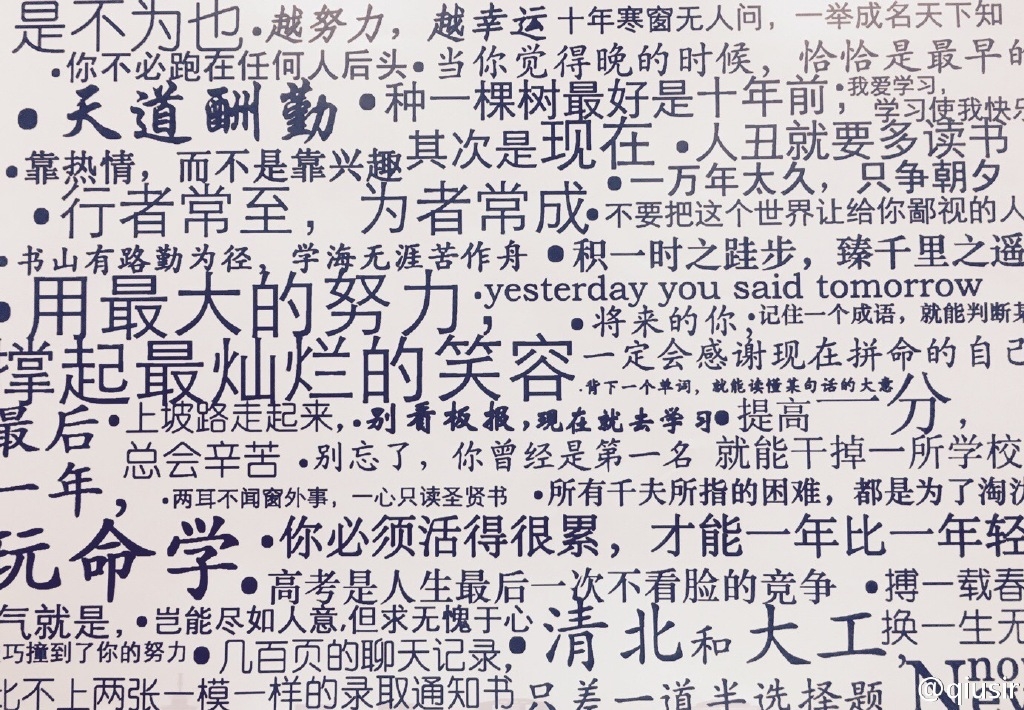 是不为也
•越努力，越幸运
十年寒窗无人问，一举成名天下知
•你不必跑在任何人后头
•当你觉得晚的时候，恰恰是最早的
•天道酬勤
•种一棵树最好是十年前，
其次是现在
•我爱学习，
学习使我快乐
•人丑就要多读书
•靠热情，而不是靠兴趣
•一万年太久，只争朝夕
•行者常至，为者常成
•不要把这个世界让给你鄙视的人
•书山有路勤为径，学海无涯苦作舟
•积一时之跬步，臻千里之遥
•用最大的努力；
撑起最灿烂的笑容
•yesterday you said tomorrow
•将来的你，
一定会感谢现在拼命的自己
•记住一个成语，就能判断某
•背下一个单词，就能读懂某句话的大意
最后
一年，
玩命学
•上坡路走起来，
总会辛苦
•别看板报，现在就去学习
•提高一分，
就能干掉一所学校
•别忘了，你曾经是第一名
•两耳不闻窗外事，一心只读圣贤书
•所有千夫所指的困难，都是为了淘汰
•你必须活得很累，才能一年比一年轻
•高考是人生最后一次不看脸的竞争
•搏一载春
换一生无
气就是，
巧撞到了你的努力
•岂能尽如人意,但求无愧于心
•几百页的聊天记录，
比不上两张一模一样的录取通知书
•清北和大工，
只差一道半选择题
Nev
now
@qiusir